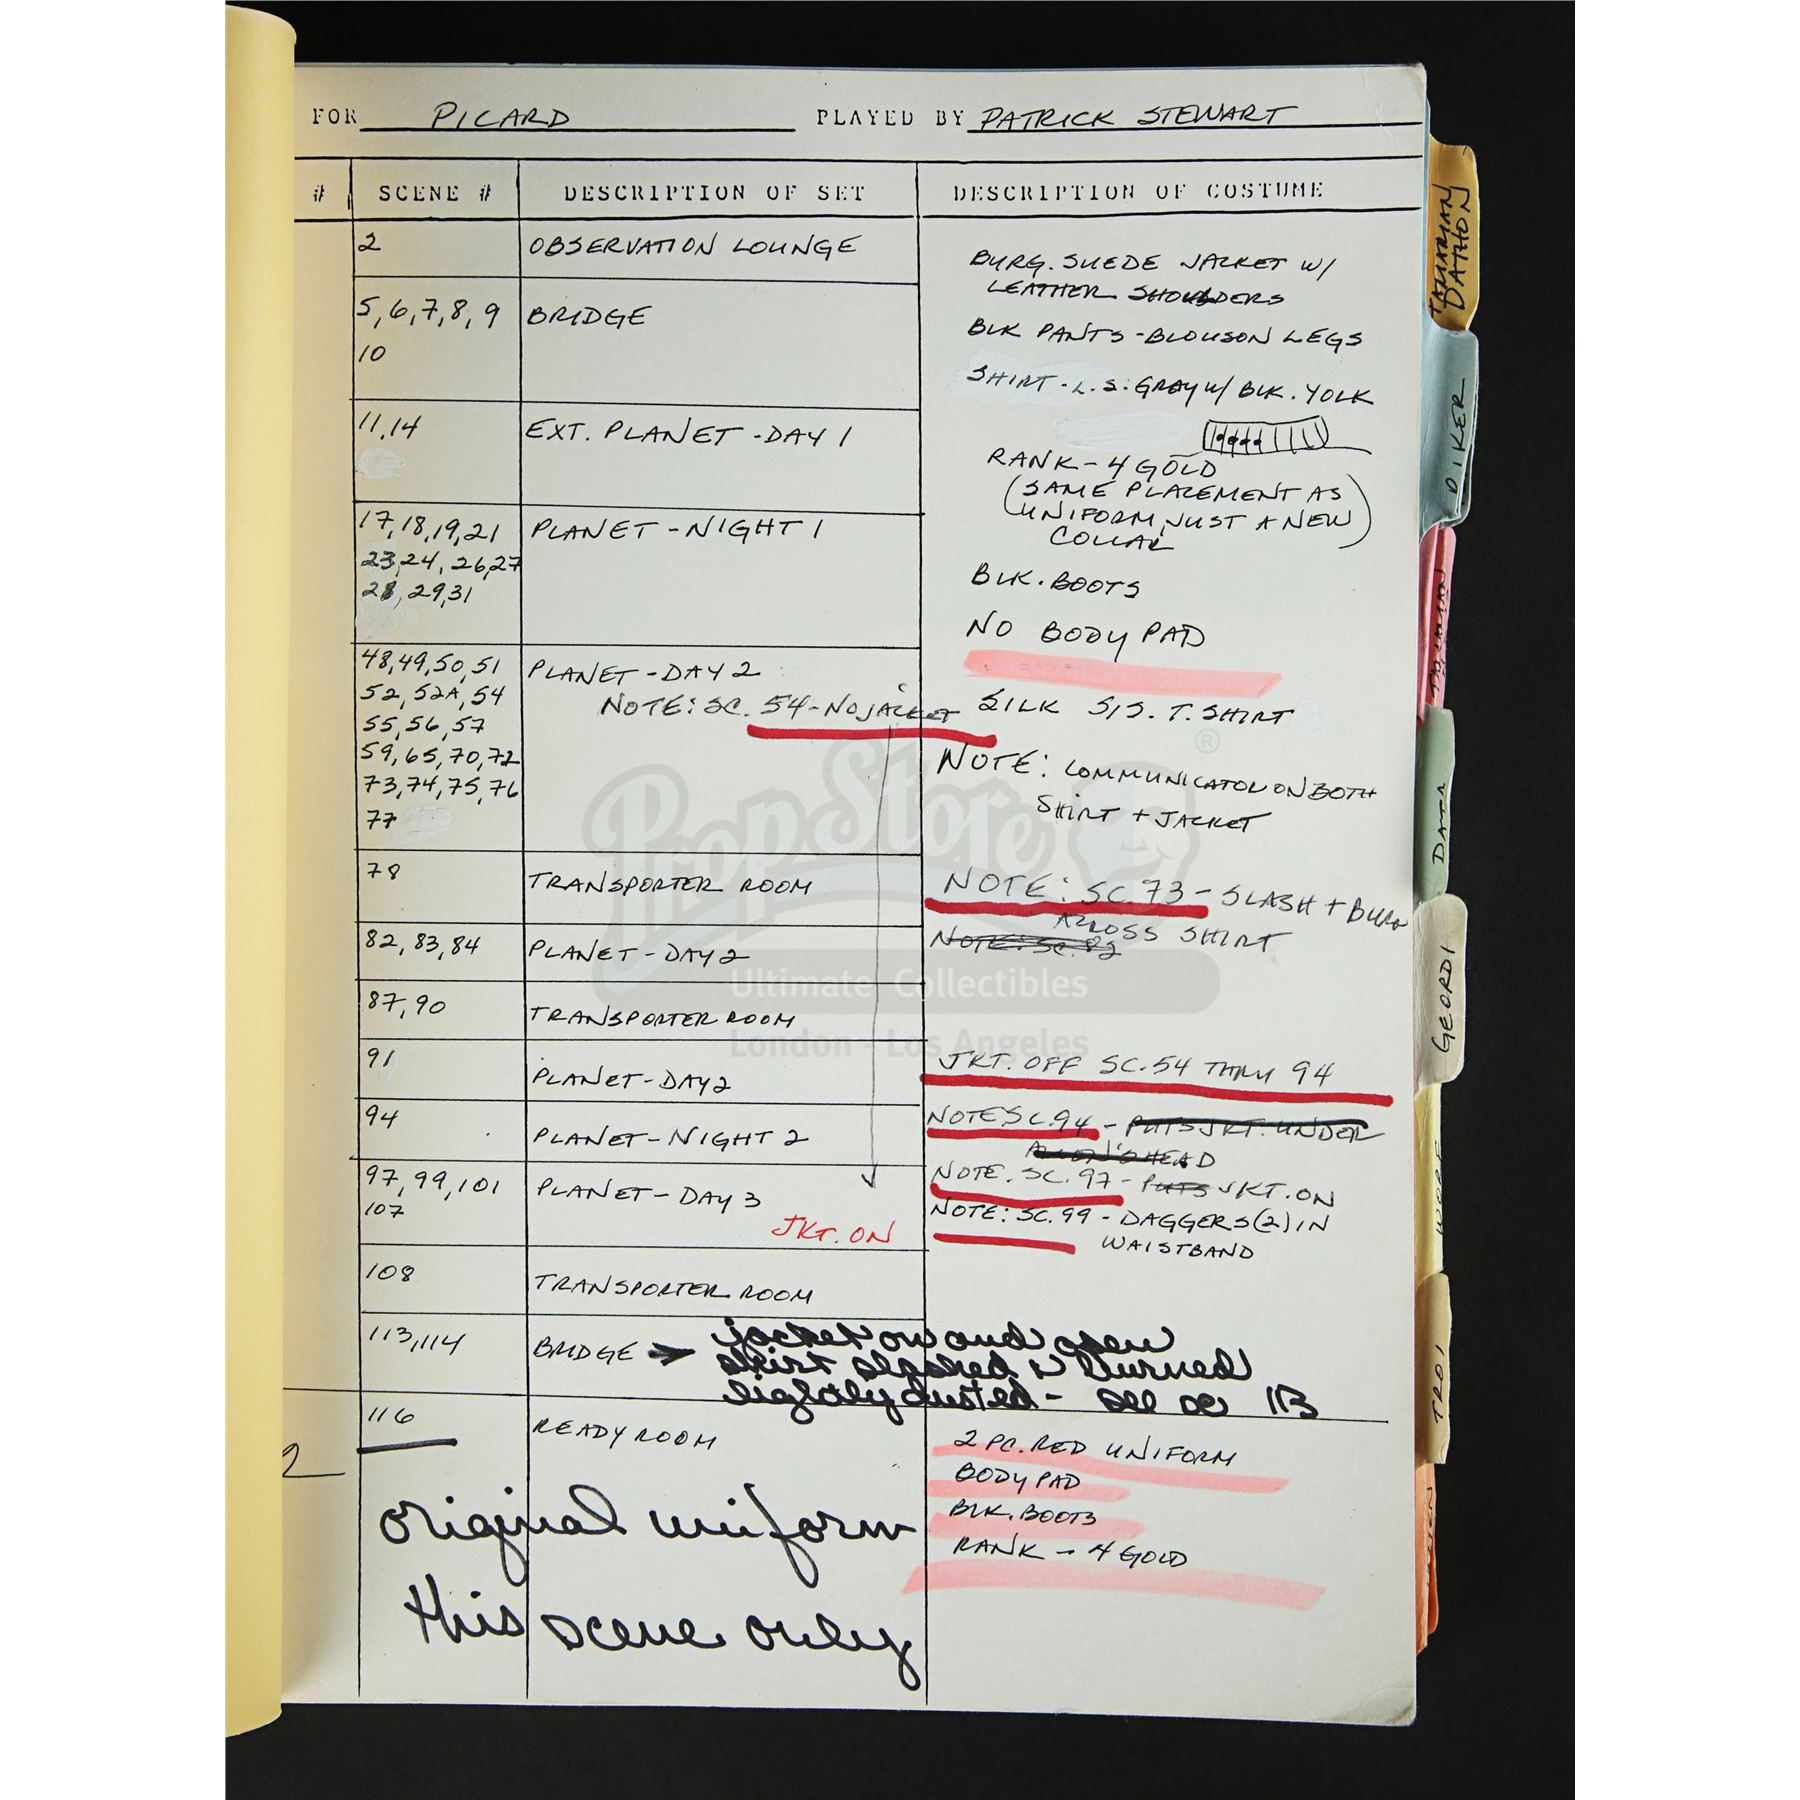 FOR PICARD PLAYED BY PATRICK STEWART
# SCENE # DESCRIPTION OF SET DESCRIPTION OF COSTUME
2 OBSERVATION LOUNGE
BURG. SUEDE JACKET W/
LEATHER SHOULDERS
5, 6, 7, 8, 9 BRIDGE
10
BLK PANTS - BLOUSON LEGS
SHIRT - L.S. GRAY W/ BLK. YOLK
11, 14 EXT. PLANET - DAY 1
RANK - 4 GOLD
(SAME PLACEMENT AS
UNIFORM, JUST A NEW
COLLAR)
17, 18, 19, 21 PLANET - NIGHT 1
23, 24, 26, 27
28, 29, 31
BLK. BOOTS
NO BODY PAD
48, 49, 50, 51 PLANET - DAY 2
52, 52A, 54 NOTE: SC. 54 - NO JACKET
55, 56, 57
59, 65, 70, 72
73, 74, 75, 76
77
SILK S/S. T. SHIRT
NOTE: COMMUNICATOR ON BOTH
SHIRT + JACKET
78 TRANSPORTER ROOM
NOTE: SC. 73 - SLASH + BURN
ACROSS SHIRT
NOTE: SC. 82
82, 83, 84 PLANET - DAY 2
87, 90 TRANSPORTER ROOM
91 PLANET - DAY 2
JKT. OFF SC. 54 THRU 94
94 PLANET - NIGHT 2
NOTE SC. 94 - PUTS JKT. UNDER
HEAD
97, 99, 101 PLANET - DAY 3
107
JKT. ON
NOTE. SC. 97 - PUTS JKT. ON
NOTE: SC. 99 - DAGGERS (2) IN
WAISTBAND
108 TRANSPORTER ROOM
113, 114 BRIDGE → jacket on and open
shirt slashed & burned
lightly dusted - see sc 113
116 READY ROOM
2
2 PC. RED UNIFORM
BODY PAD
BLK. BOOTS
RANK - 4 GOLD
original uniform
this scene only
TAMARIAN
DATHON
RIKER
TAMARIAN
DATA
GEORDI
WORF
TROI
PropStore ®
Ultimate Collectibles
London - Los Angeles